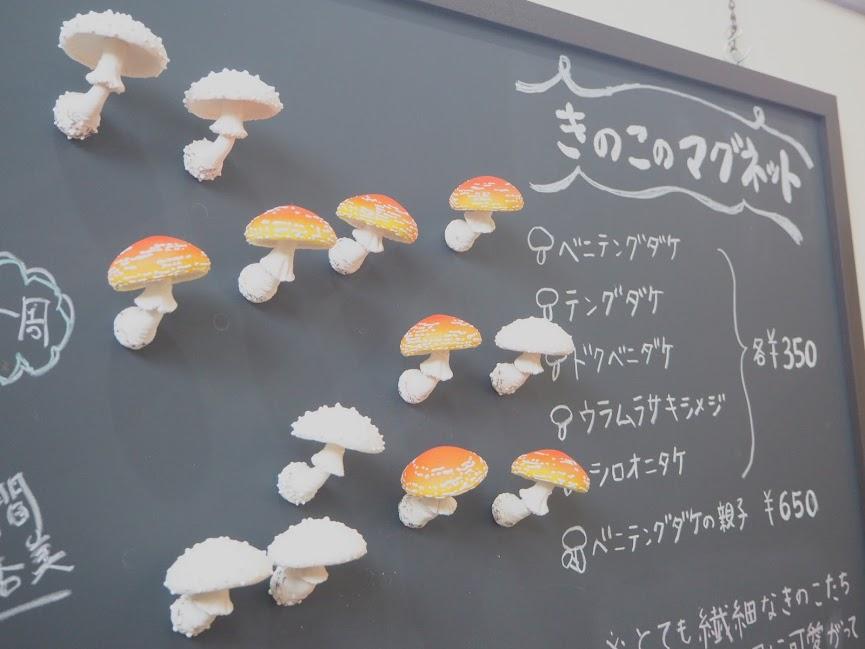 きのこのマグネット
ベニテングダケ
テングダケ
ドクベニダケ
ウラムラサキシメジ
シロオニタケ
各¥350
ベニテングダケの親子 ¥650
※とても繊細なきのこたち
可愛がって
一周
間
香美